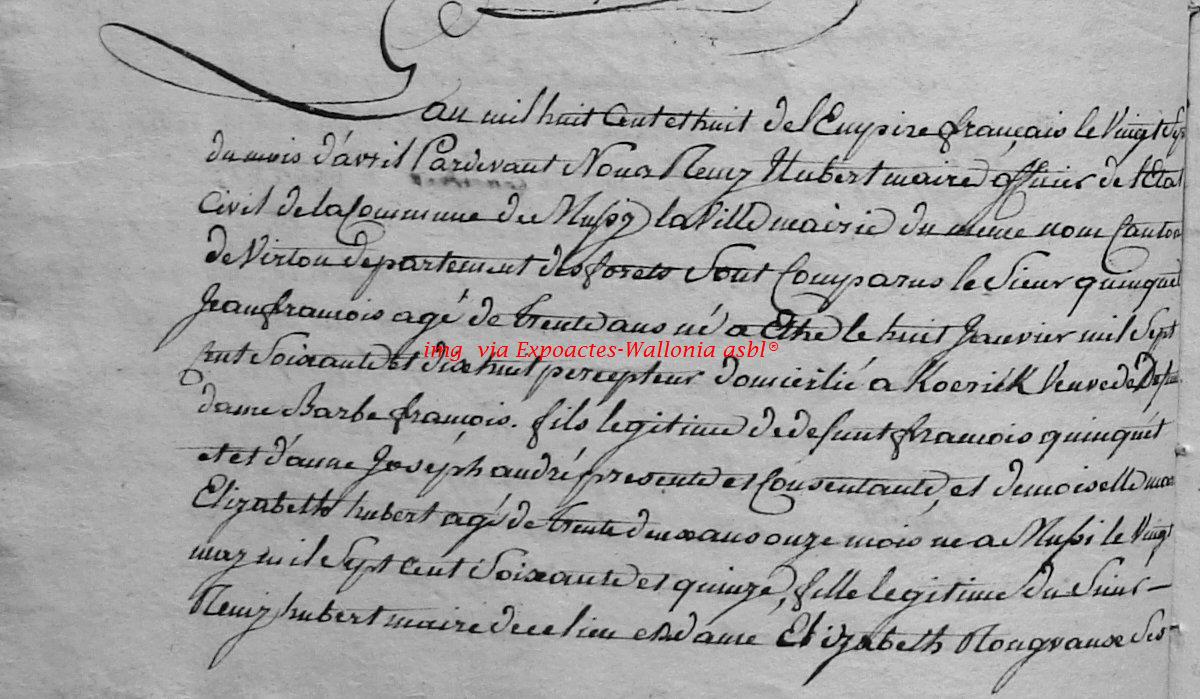 L'an mil huit cent et huit de l'Empire français le Vingt Sept
du mois d'avril Pardevant Nous Remy Hubert maire officier de l'Etat
Civil de la Commune de Mussy la Ville mairie du meme nom Canton
de Virton departement des forets Sont Comparus le Sieur quinquet
Jean françois agé de trente ans né a Ethe le huit Janvier mil Sept
img via Expoactes-Wallonia asbl®
cent Soixante et dix huit percepteur domicilié a Koerick Veuve de Defunte
dame Barbe françois. fils legitime de defunt françois quinquét
et et d'anne Joséph andré presente et Consentante, et demoiselle marie
Elizabeth hubert agé de trente deux ans onze mois né a Mussi le Vingt
may mil Sept Cent Soixante et quinze, fille legitime du Sieur
Remy hubert maire de ce lieu et dame Elizabeth Rongvaux Ses